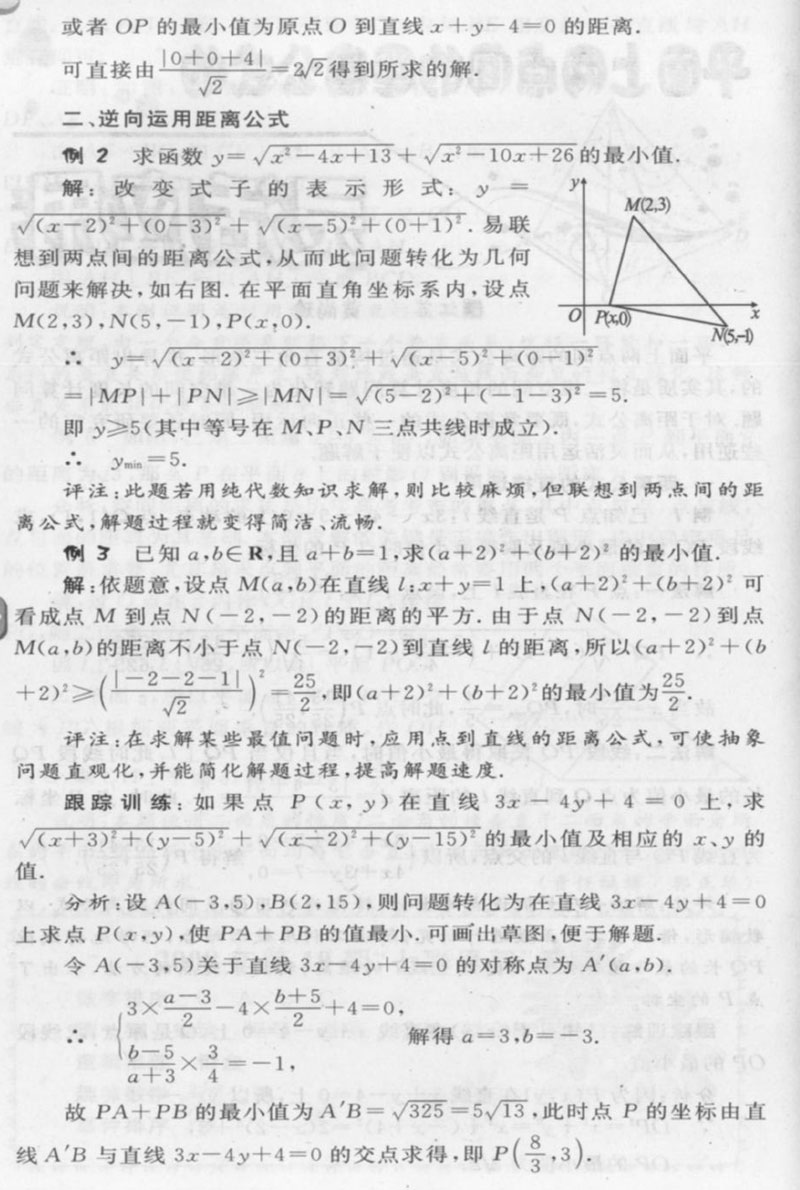 或者 OP 的最小值为原点 O 到直线 x+y-4=0 的距离.
可直接由 |0+0+4|/√2 =2√2得到所求的解.
二、逆向运用距离公式
例 2 求函数 y=√(x²-4x+13)+√(x²-10x+26)的最小值.
解:改变式子的表示形式: y =
√((x-2)²+(0-3)²)+√((x-5)²+(0+1)²). 易联
想到两点间的距离公式,从而此问题转化为几何
问题来解决,如右图. 在平面直角坐标系内,设点
M(2,3),N(5,-1),P(x,0).
y
M(2,3)
O P(x,0) x
N(5,-1)
∴ y=√((x-2)²+(0-3)²)+√((x-5)²+(0-1)²)
=|MP|+|PN|≥|MN|=√((5-2)²+(-1-3)²)=5.
即 y≥5(其中等号在 M、P、N 三点共线时成立).
∴ ymin=5.
评注:此题若用纯代数知识求解,则比较麻烦,但联想到两点间的距
离公式,解题过程就变得简洁、流畅.
例 3 已知 a,b∈R,且 a+b=1,求(a+2)²+(b+2)² 的最小值.
解:依题意,设点 M(a,b)在直线 l:x+y=1 上,(a+2)²+(b+2)² 可
看成点 M 到点 N(-2,-2)的距离的平方. 由于点 N(-2,-2)到点
M(a,b)的距离不小于点 N(-2,-2)到直线 l 的距离,所以(a+2)²+(b
+2)²≥(|-2-2-1|/√2)²=25/2,即(a+2)²+(b+2)²的最小值为25/2.
评注:在求解某些最值问题时,应用点到直线的距离公式,可使抽象
问题直观化,并能简化解题过程,提高解题速度.
跟踪训练:如果点 P(x,y)在直线 3x-4y+4=0 上,求
√((x+3)²+(y-5)²)+√((x-2)²+(y-15)²)的最小值及相应的 x、y 的
值.
分析:设 A(-3,5),B(2,15),则问题转化为在直线 3x-4y+4=0
上求点 P(x,y),使 PA+PB 的值最小.可画出草图,便于解题.
令 A(-3,5)关于直线 3x-4y+4=0 的对称点为 A′(a,b).
∴ {3×(a-3)/2-4×(b+5)/2+4=0,
(b-5)/(a+3)×3/4=-1, 解得 a=3,b=-3.
故 PA+PB 的最小值为 A′B=√325=5√13,此时点 P 的坐标由直
线 A′B 与直线 3x-4y+4=0 的交点求得,即 P(8/3,3).